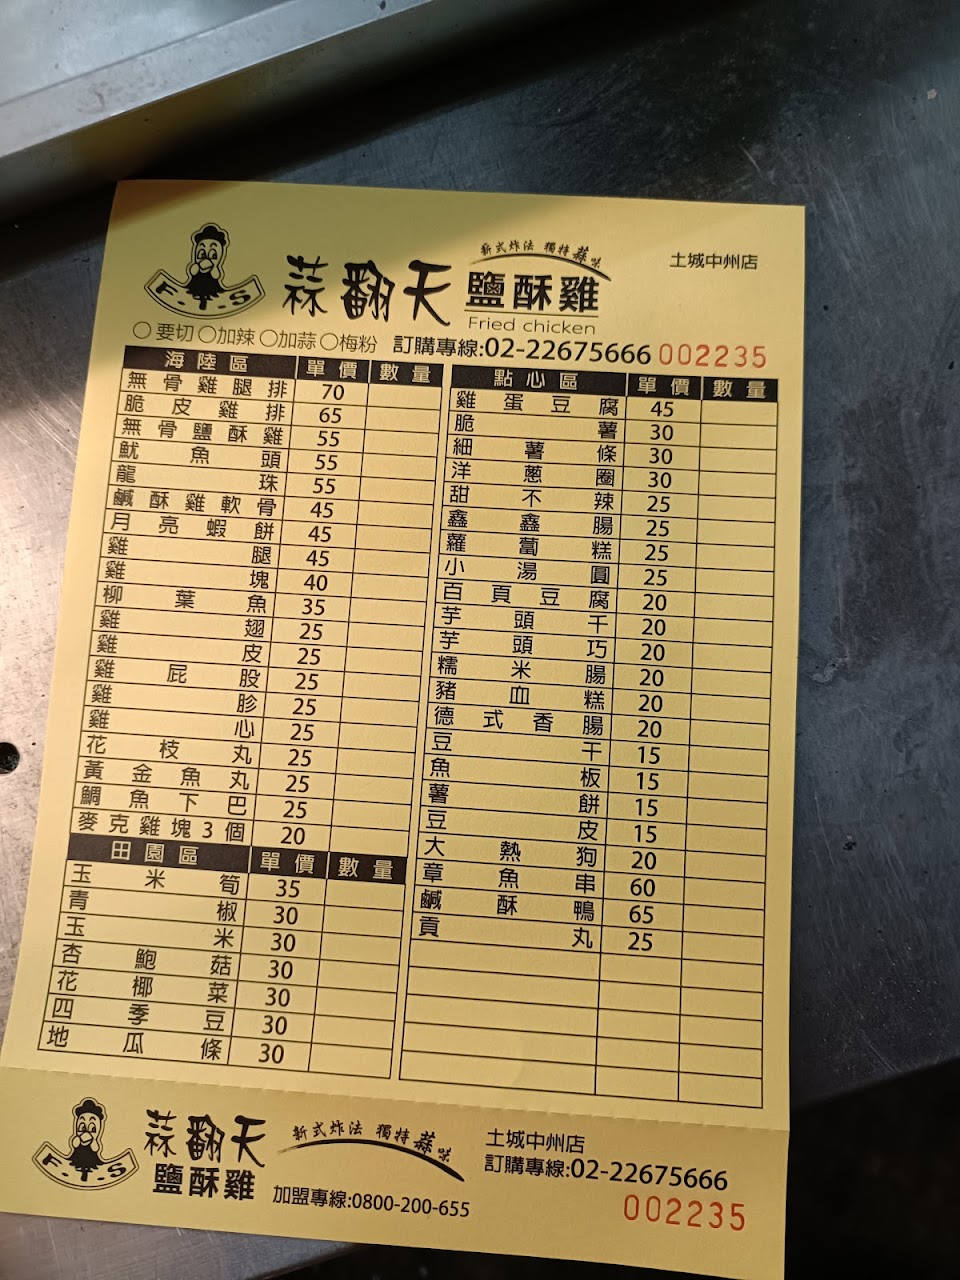 F.T.S
蒜翻天
新式炸法 獨特蒜味
鹽酥雞
Fried chicken
土城中州店
○要切○加辣○加蒜○梅粉 訂購專線:02-22675666 002235
海陸區 單價 數量
無骨雞腿排 70
脆皮雞排 65
無骨鹽酥雞 55
魷魚頭 55
龍珠 55
鹹酥雞軟骨 45
月亮蝦餅 45
雞腿 45
雞塊 40
柳葉魚 35
雞翅 25
雞皮 25
雞屁股 25
雞胗 25
雞心 25
花枝丸 25
黃金魚丸 25
鯛魚下巴 25
麥克雞塊3個 20
田園區 單價 數量
玉米筍 35
青椒 30
玉米 30
杏鮑菇 30
花椰菜 30
四季豆 30
地瓜條 30
點心區 單價 數量
雞蛋豆腐 45
脆薯 30
細薯條 30
洋蔥圈 30
甜不辣 25
鑫鑫腸 25
蘿蔔糕 25
小湯圓 25
百頁豆腐 20
芋頭干 20
芋頭巧 20
糯米腸 20
豬血糕 20
德式香腸 20
豆干 15
魚板 15
薯餅 15
豆皮 15
大熱狗 20
章魚串 60
鹹酥鴨 65
貢丸 25
F.T.S
蒜翻天
鹽酥雞
新式炸法 獨特蒜味
加盟專線:0800-200-655
土城中州店
訂購專線:02-22675666
002235